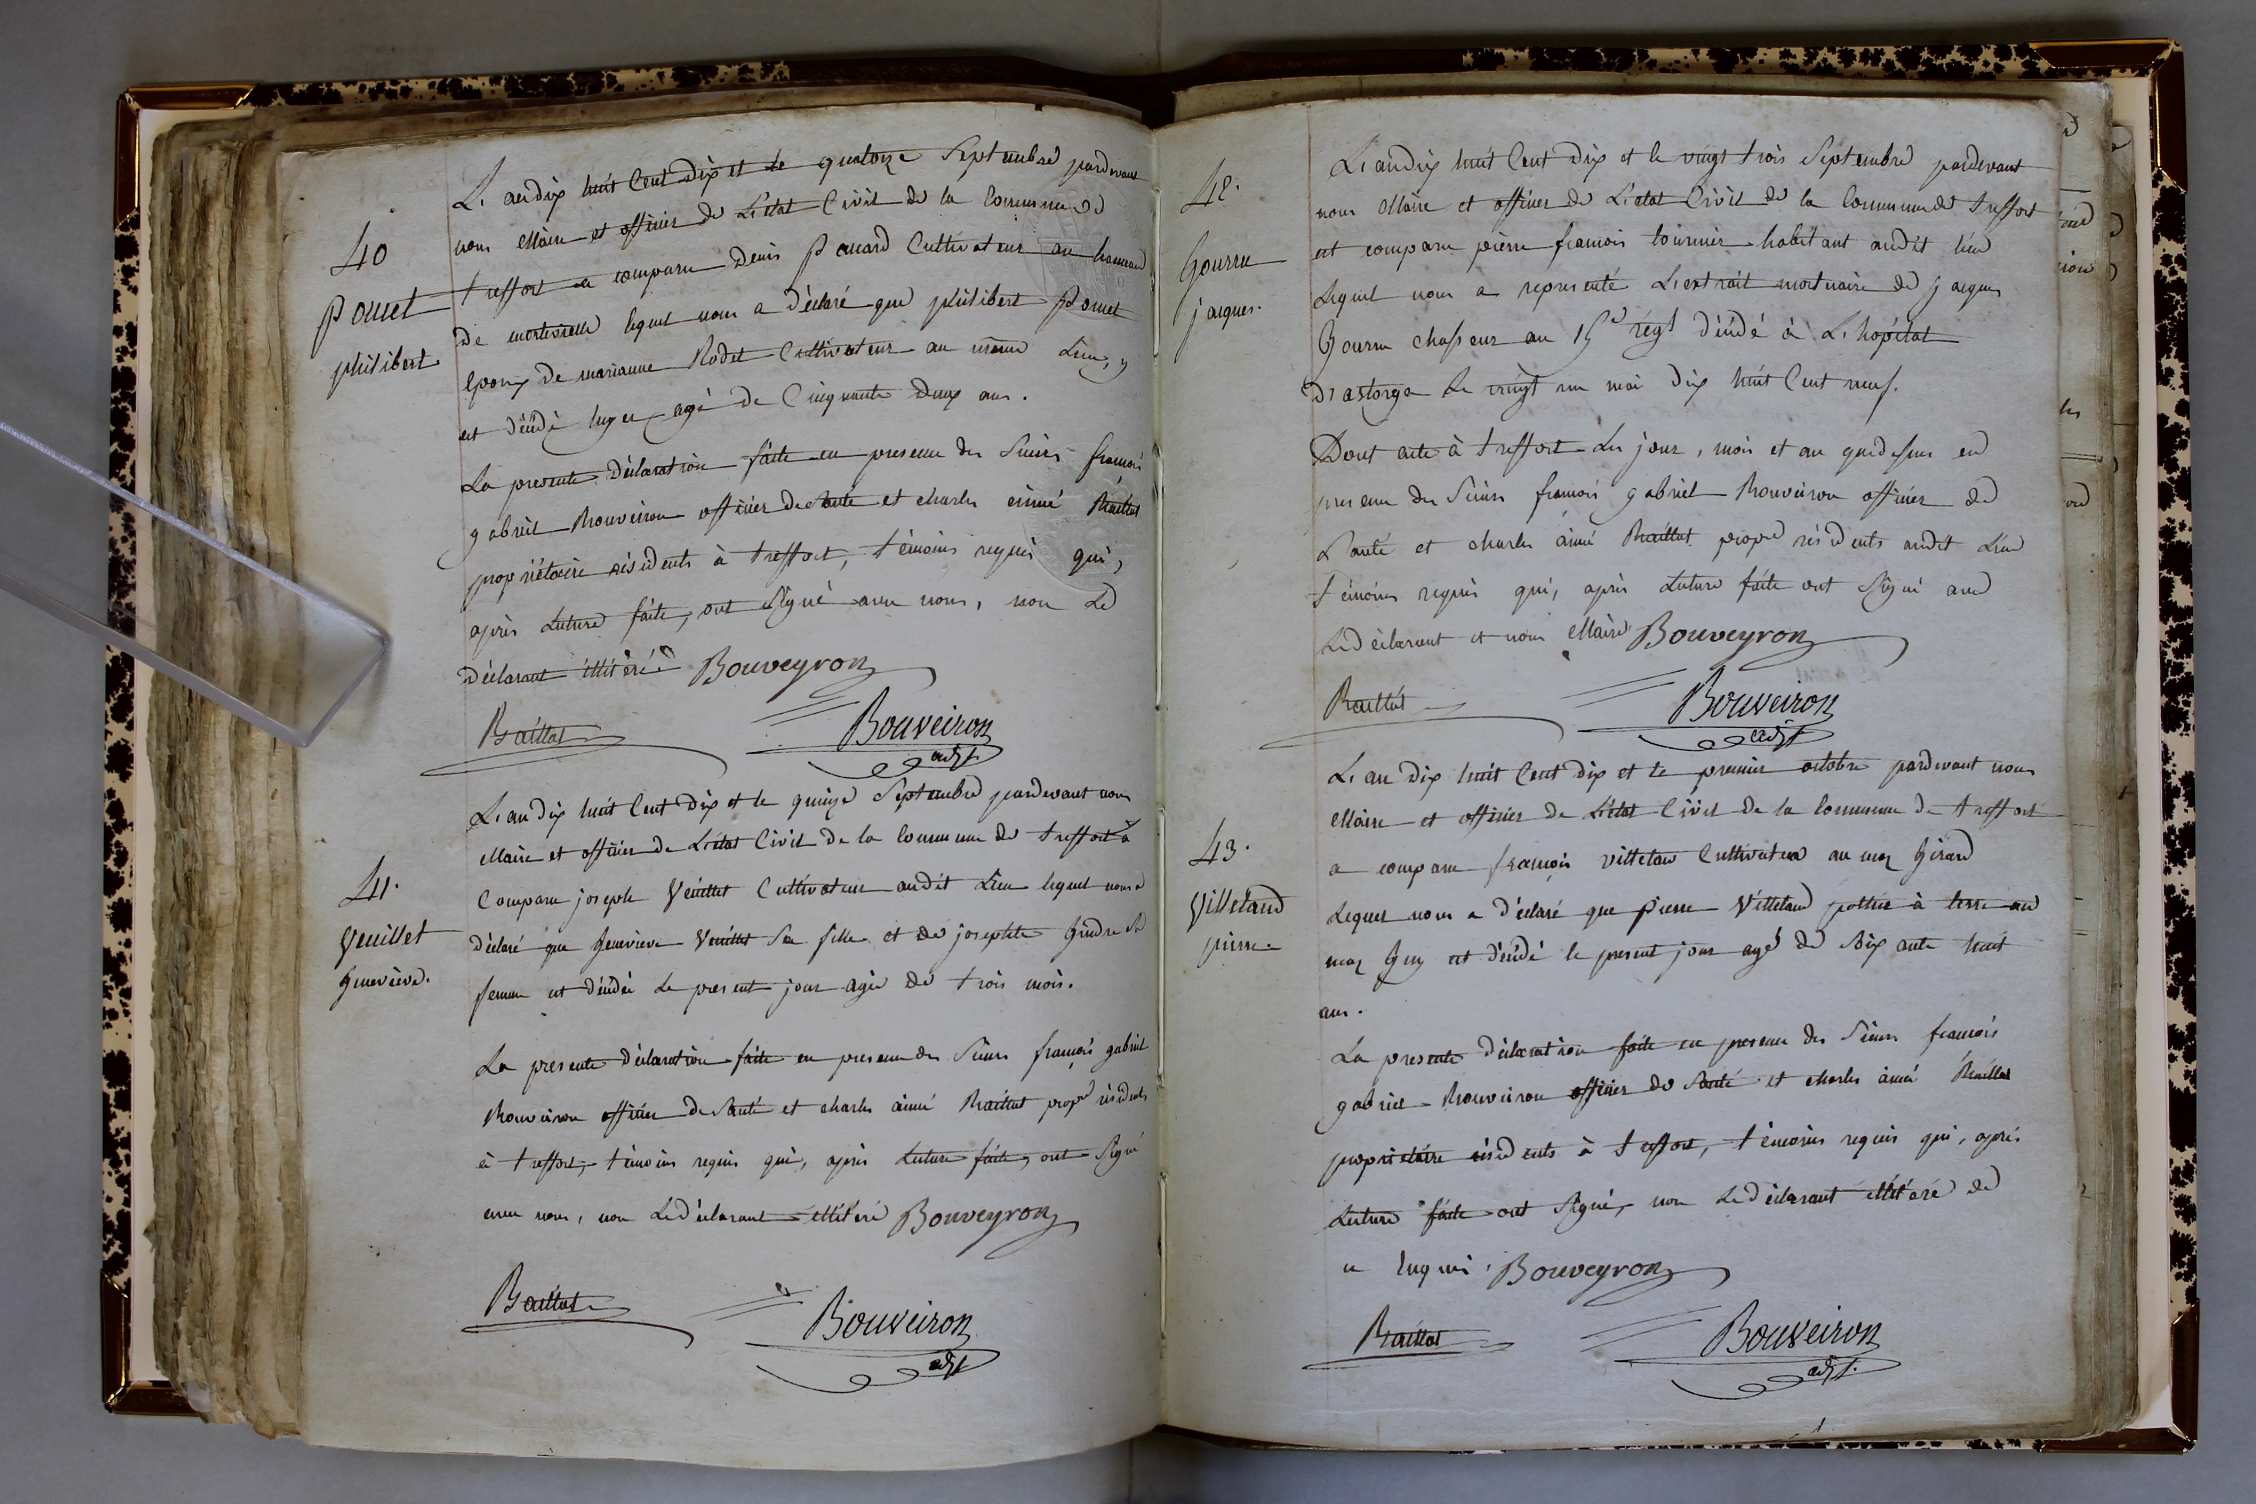 40
Pouet
philibert
L'an dix huit Cent Dix et le quatorze Septembre pardevant
nous Maire et officier de L'état Civil de la Commune de
treffort a comparu Denis Pauard Cultivateur au hameau
De montivielle lequel nous a déclaré que philibert Pouet
Epoux de marianne Rodet Cultivateur au même Lieu, y
est décédé hyer, agé de Cinquante deux ans.
La presente Déclaration faite en presence des Sieurs françois
gabriel Bouveiron officier de Santé et charles aimé Baillat
propriétaire résidents à treffort, témoins requis qui,
après Lecture faite, ont Signé avec nous, non Le
Déclarant illitéré Bouveyron
Baillat Bouveiron
adjt.
41.
Veuillet
Genevieve.
L'an dix huit Cent Dix et le quinze Septembre pardevant nous
Maire et officier de L'état Civil de la Commune de treffort a
Comparu joseph Veuillet Cultivateur audit Lieu lequel nous a
déclaré que Genevieve Veuillet Sa fille et de josephte Gindre Sa
femme est décédée Le present jour agée de trois mois.
La presente déclaration faite en presence des Sieurs françois gabriel
Bouveiron officier de Santé et charles aimé Baillat propre résidents
à treffort, témoins requis qui, après Lecture faite, ont Signé
avec nous, non Le déclarant illitéré Bouveyron
Baillat Bouveiron
adjt
42.
Gourru
jacques.
L'an dix huit Cent Dix et le vingt trois Septembre pardevant
nous Maire et officier de L'etat Civil de la Commune de treffort
est comparu pierre françois tournier habitant audit lieu
Lequel nous a representé L'extrait mortuaire de jacques
Gourru chasseur au 15e régt décédé à L'hopital
D'astorga Le vingt un mai dix huit Cent neuf.
Dont acte à treffort Les jour, mois et an que dessus en
presence des Sieurs françois gabriel Bouveiron officier de
Santé et charles aimé Baillat propre résidents audit Lieu
témoins requis qui, après Lecture faite ont Signé avec
Le déclarant et nous Maire Bouveyron
Baillat Bouveiron
adjt
43.
Villeland
pierre.
L'an dix huit Cent Dix et le premier octobre pardevant nous
Maire et officier de L'état Civil de la Commune de treffort
a comparu françois villeland Cultivateur au maz Girard
Lequel nous a déclaré que pierre Villeland pottier à terre au
maz Guy est décédé le present jour agé de Soixante huit
ans.
La presente déclaration faite en presence des Sieurs françois
gabriel Bouveiron officier de Santé et charles aimé Baillat
propriétaire résidents à treffort, témoins requis qui, après
Lecture faite ont Signé, non Le déclarant illitéré de
ce Enquis. Bouveyron
Baillat Bouveiron
adjt.